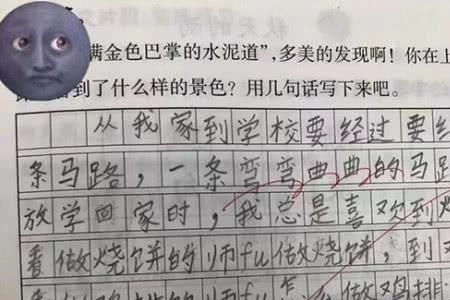 满金色巴掌的水泥道”,多美的发现啊!你在上
到了什么样的景色?用几句话写下来吧。
从我家到学校要经过要
条马路,一条弯弯曲曲的马路
放学回家时,我总是喜欢到
看做烧饼的师fu做烧饼,到
的师fu怎 做鸡排